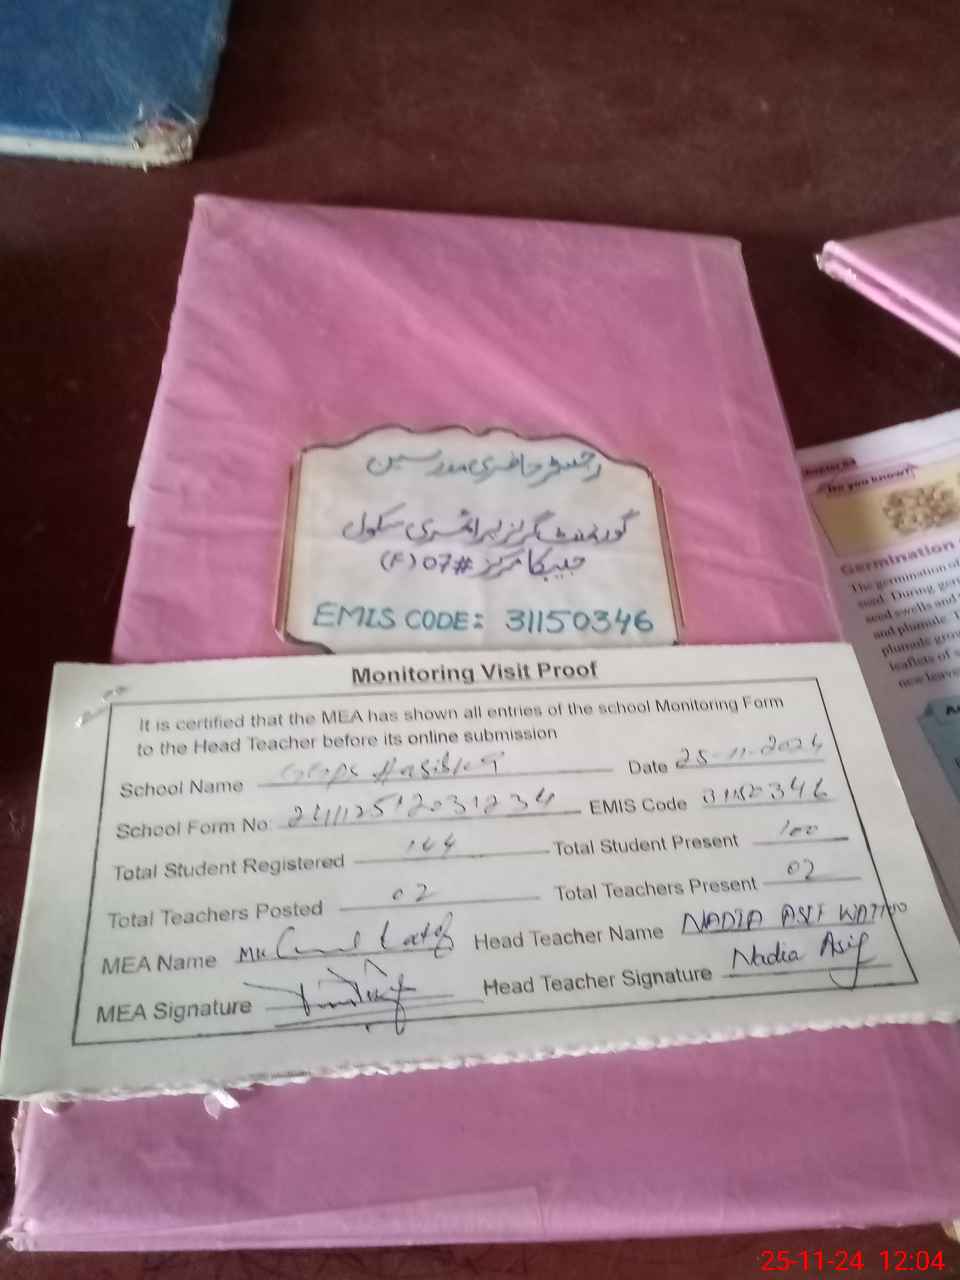 رجسٹر حاضری مدرسین
گورنمنٹ گرلز پرائمری سکول
حبیبکا مرکز #07 (F)
EMIS CODE: 31150346
Do you know?
Germination
The germination of
seed. During ger
seed swells and
and plumule.
plumule grow
leaflets of
new leave
Monitoring Visit Proof
It is certified that the MEA has shown all entries of the school Monitoring Form
to the Head Teacher before its online submission
School Name
Date 25-11-2024
School Form No:
EMIS Code 31150346
Total Student Registered 144
Total Student Present 100
Total Teachers Posted 02
Total Teachers Present 02
MEA Name
Head Teacher Name NADIA ASIF WATTOO
MEA Signature
Head Teacher Signature Nadia Asif
25-11-24 12:04